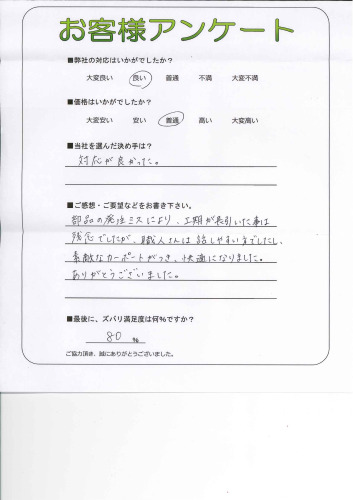 お客様アンケート
■弊社の対応はいかがでしたか？
大変良い 良い 普通 不満 大変不満
■価格はいかがでしたか？
大変安い 安い 普通 高い 大変高い
■当社を選んだ決め手は？
対応が良かった。
■ご感想・ご要望などをお書き下さい。
部品の発注ミスにより、工期が長引いた事は
残念でしたが、職人さんは話しやすい方でしたし、
素敵なカーポートがつき、快適になりました。
ありがとうございました。
■最後に、ズバリ満足度は何%ですか？
80 %
ご協力頂き、誠にありがとうございました。